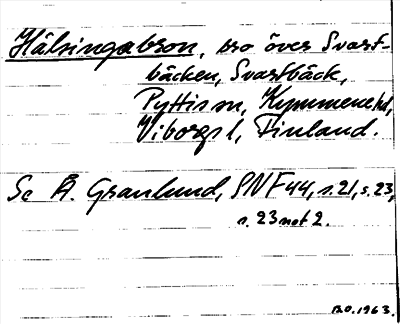 Hälsingabron, bro över Svart-
bäcken, Svartbäck,
Pyttis sn, Kymmene hd,
Viborgs l, Finland.
Se Å. Granlund, SNF 44, s. 21, s. 23,
s. 23 not 2.
1963.